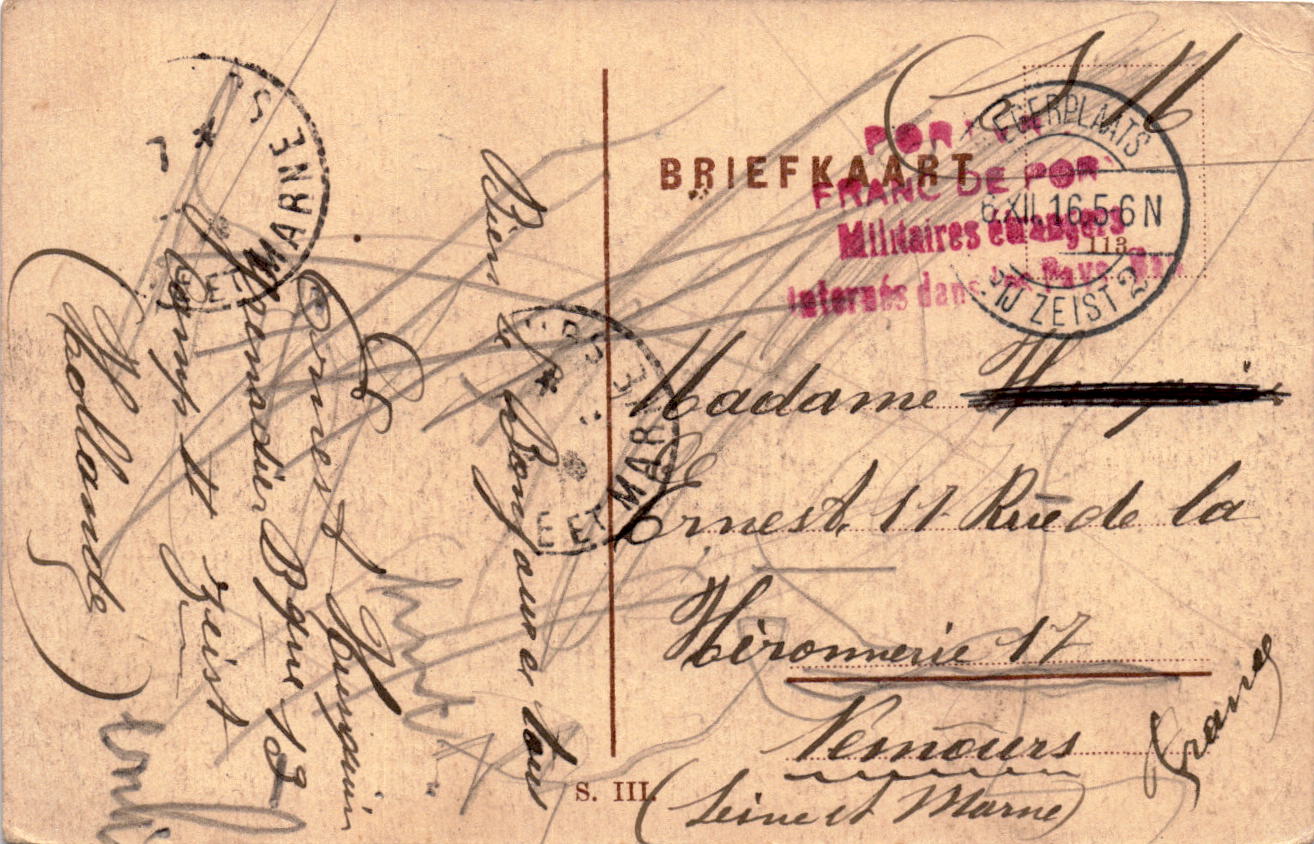 S M
BRIEFKAART
FRANC DE PORT
Militaires étrangers
Internés dans les Pays-Bas
LEGERPLAATS
6.XII.16.5-6N
BIJ ZEIST 2
113
Madame
Ernest, 11 Rue de la
Héronnerie 17
Nemours
(Seine et Marne)
France
S. III.
Bien le Bonjour à tous
Ernest
Grenadier Bque 13
Camp II Zeist
Hollande
ET MARNE
E ET MAR